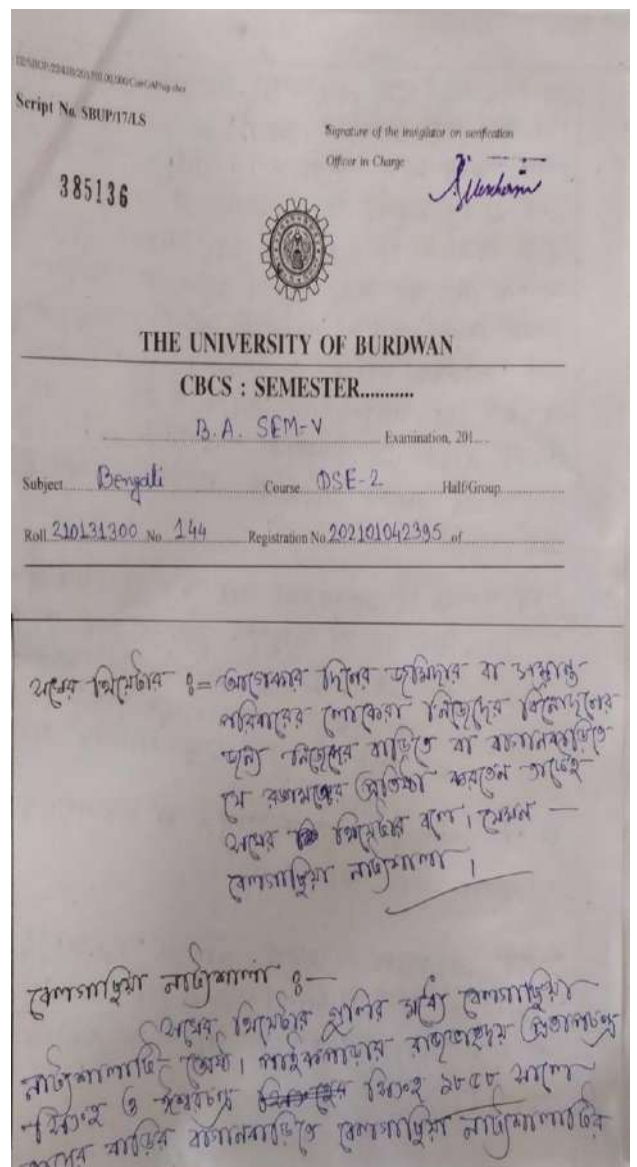 Script No. SBUP/17/LS
Signature of the invigilator on verification
Officer in Charge
385136
THE UNIVERSITY OF BURDWAN
CBCS : SEMESTER...........
B.A. SEM-V Examination, 201....
Subject Bengali Course DSE-2 Half/Group
Roll 210131300 No. 144 Registration No. 202101042395 of
সখের থিয়েটার :- আগেকার দিনের জমিদার বা সম্ভ্রান্ত
পরিবারের লোকেরা নিজেদের বিনোদনের
জন্য নিজেদের বাড়িতে বা বাগানবাড়িতে
যে রঙ্গমঞ্চের প্রতিষ্ঠা করতেন তাকেই
সখের থিয়েটার বলে। যেমন —
বেলগাছিয়া নাট্যশালা।
বেলগাছিয়া নাট্যশালা :—
সখের থিয়েটার গুলির মধ্যে বেলগাছিয়া
নাট্যশালাটি শ্রেষ্ঠ। পাইকপাড়ার রাজভ্রাতৃদ্বয় প্রতাপচন্দ্র
সিংহ ও ঈশ্বরচন্দ্র সিংহ ১৮৫৮ সালে
তাদের বাড়ির বাগানবাড়িতে বেলগাছিয়া নাট্যশালাটির